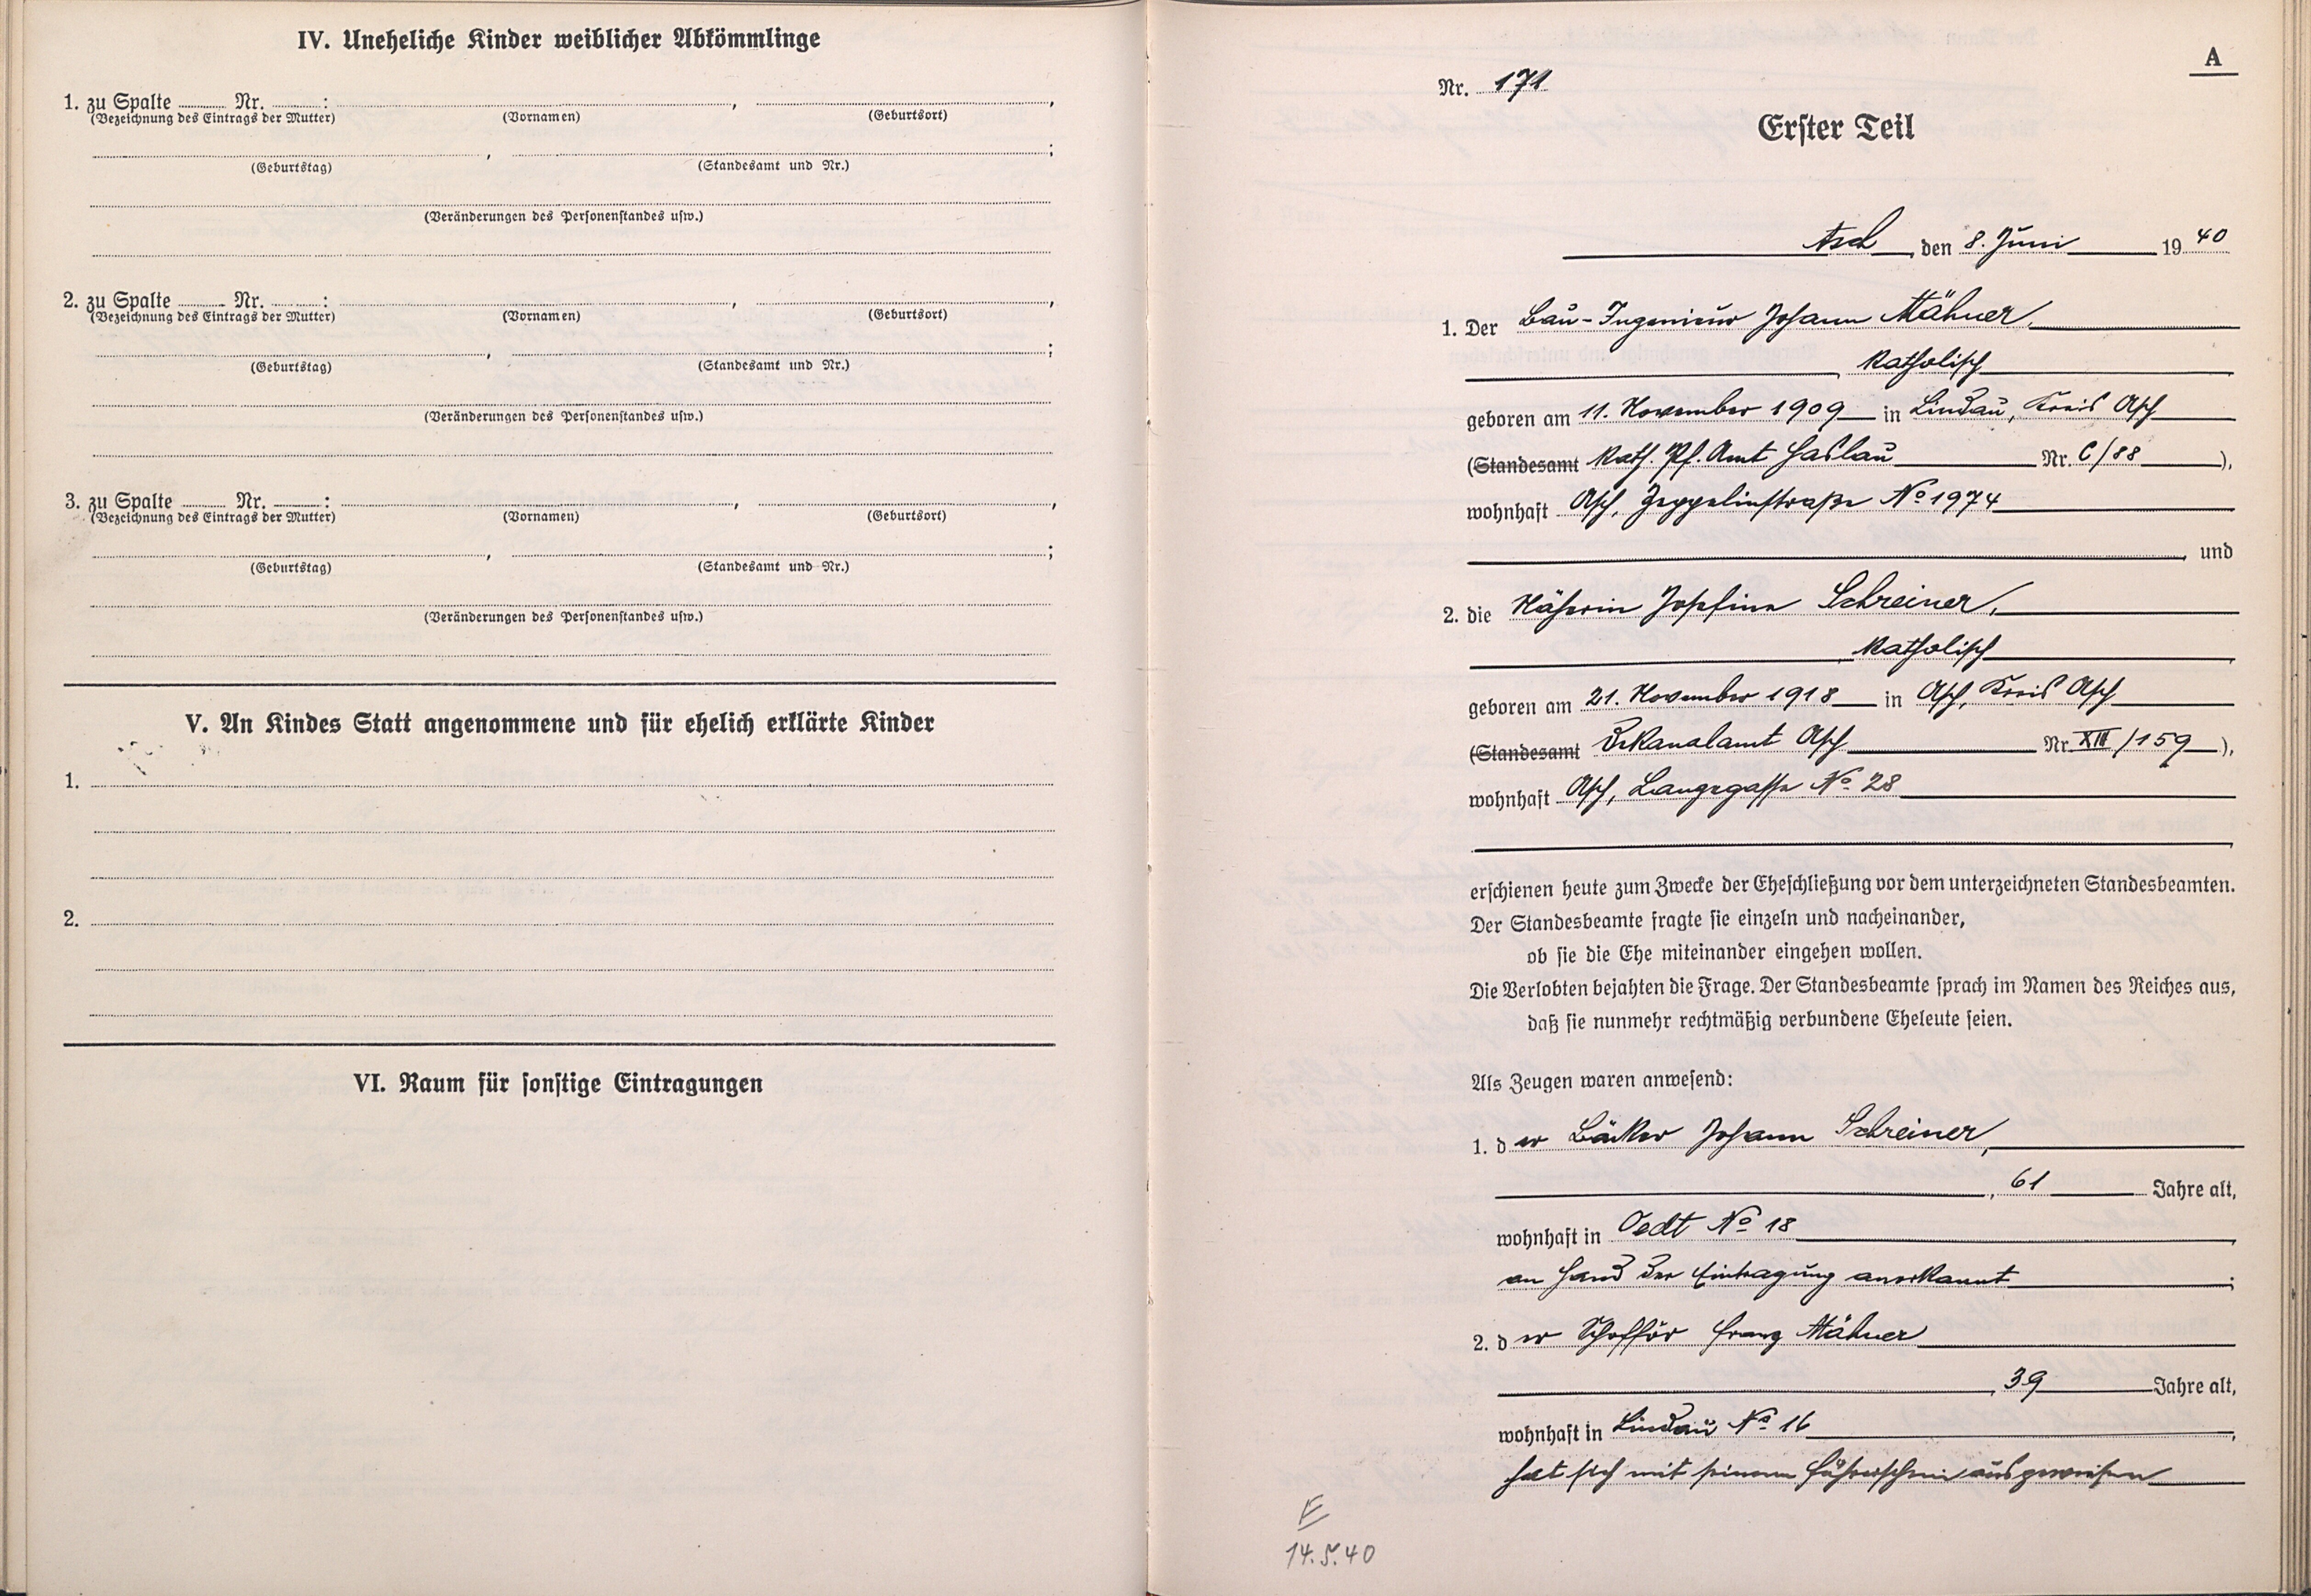 IV. Uneheliche Kinder weiblicher Abkömmlinge
1. zu Spalte ........ Nr. ........ : ........ , ........ ,
(Bezeichnung des Eintrags der Mutter) (Vornamen) (Geburtsort)
........ , ........ ;
(Geburtstag) (Standesamt und Nr.)
(Veränderungen des Personenstandes usw.)
2. zu Spalte ........ Nr. ........ : ........ , ........ ,
(Bezeichnung des Eintrags der Mutter) (Vornamen) (Geburtsort)
........ , ........ ;
(Geburtstag) (Standesamt und Nr.)
(Veränderungen des Personenstandes usw.)
3. zu Spalte ........ Nr. ........ : ........ , ........ ,
(Bezeichnung des Eintrags der Mutter) (Vornamen) (Geburtsort)
........ , ........ ;
(Geburtstag) (Standesamt und Nr.)
(Veränderungen des Personenstandes usw.)
V. An Kindes Statt angenommene und für ehelich erklärte Kinder
1.
2.
VI. Raum für sonstige Eintragungen
A
Nr. 171
Erster Teil
Asch, den 8. Juni 1940
1. Der Bau-Ingenieur Johann Mähner,
katholisch
geboren am 11. November 1909 in Lindau, Kreis Asch
(Standesamt Kath. Pf. Amt Haslau Nr. C/88),
wohnhaft Asch, Zeppelinstraße No 1974
, und
2. die Näherin Josefine Schreiner,
, katholisch
geboren am 21. November 1918 in Asch, Kreis Asch
(Standesamt Dekanalamt Asch Nr. XIII/159),
wohnhaft Asch, Langegasse No 28
erschienen heute zum Zwecke der Eheschließung vor dem unterzeichneten Standesbeamten.
Der Standesbeamte fragte sie einzeln und nacheinander,
ob sie die Ehe miteinander eingehen wollen.
Die Verlobten bejahten die Frage. Der Standesbeamte sprach im Namen des Reiches aus,
daß sie nunmehr rechtmäßig verbundene Eheleute seien.
Als Zeugen waren anwesend:
1. der Bäcker Johann Schreiner,
, 61 Jahre alt,
wohnhaft in Oedt No 18,
an Hand der Eintragung anerkannt;
2. der Schofför Franz Mähner
, 39 Jahre alt,
wohnhaft in Lindau No 16,
hat sich mit seinem Führerschein ausgewiesen
14.5.40